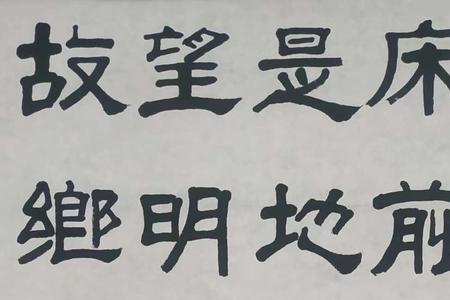 床前
是地
望明
故鄉